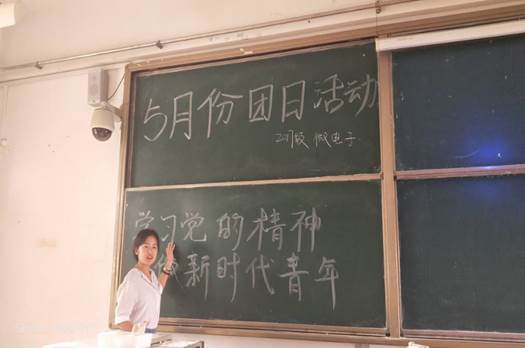 5月份团日活动
级 微电子
学习党的精神
做新时代青年